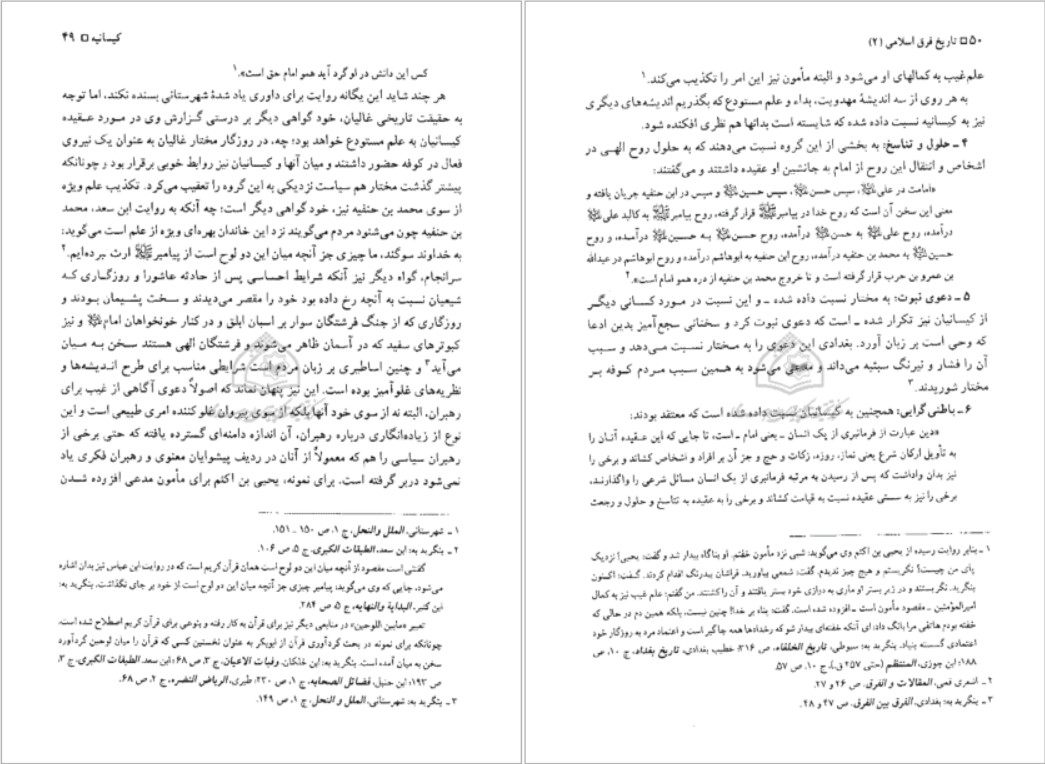 کیسانیه □ ۴۹
کس این دانش در او گرد آید همو امام حق است».۱
هر چند شاید این یگانه روایت برای داوری یاد شدهٔ شهرستانی بسنده نکند، اما توجه
به حقیقت تاریخی غالیان، خود گواهی دیگر بر درستی گزارش وی در مورد عقیده
کیسانیان به علم مستودع خواهد بود؛ چه، در روزگار مختار غالیان به عنوان یک نیروی
فعال در کوفه حضور داشتند و میان آنها و کیسانیان نیز روابط خوبی برقرار بود و چونانکه
پیشتر گذشت مختار هم سیاست نزدیکی به این گروه را تعقیب می‌کرد. تکذیب علم ویژه
از سوی محمد بن حنفیه نیز، خود گواهی دیگر است؛ چه آنکه به روایت ابن سعد، محمد
بن حنفیه چون می‌شنود مردم می‌گویند نزد این خاندان بهره‌ای ویژه از علم است می‌گوید:
به خداوند سوگند، ما چیزی جز آنچه میان این دو لوح است از پیامبرﷺ ارث نبرده‌ایم.۲
سرانجام، گواه دیگر نیز آنکه شرایط احساسی پس از حادثه عاشورا و روزگاری که
شیعیان نسبت به آنچه رخ داده بود خود را مقصر می‌دیدند و سخت پشیمان بودند و
روزگاری که از جنگ فرشتگان سوار بر اسبان ابلق و در کنار خونخواهان امام و نیز
کبوترهای سفید که در آسمان ظاهر می‌شوند و فرشتگان الهی هستند سخن به میان
می‌آید۳ و چنین اساطیری بر زبان مردم است شرایطی مناسب برای طرح اندیشه‌ها و
نظریه‌های غلوآمیز بوده است. این نیز پنهان نماند که اصولاً دعوی آگاهی از غیب برای
رهبران، البته نه از سوی خود آنها بلکه از سوی پیروان غلو کننده امری طبیعی است و این
نوع از زیاده‌انگاری درباره رهبران، آن اندازه دامنه‌ای گسترده یافته که حتی برخی از
رهبران سیاسی را هم که معمولاً از آنان در ردیف پیشوایان معنوی و رهبران فکری یاد
نمی‌شود دربر گرفته است. برای نمونه، یحیی بن اکثم برای مأمون مدعی افزوده شدن
۱ ـ شهرستانی، الملل والنحل، ج ۱، ص ۱۵۰ ـ ۱۵۱.
۲ ـ بنگرید به: ابن سعد، الطبقات الکبری، ج ۵، ص ۱۰۶.
گفتنی است مقصود از آنچه میان این دو لوح است همان قرآن کریم است که در روایت ابن عباس نیز بدان اشاره
می‌شود، جایی که وی می‌گوید: پیامبر چیزی جز آنچه میان این دو لوح است از خود بر جای نگذاشت. بنگرید به:
ابن کثیر، البدایة والنهایه، ج ۵، ص ۲۸۴.
تعبیر «مابین اللوحین» در منابعی دیگر نیز برای قرآن به کار رفته و بنوعی برای قرآن کریم اصطلاح شده است،
چونانکه برای نمونه در بحث گردآوری قرآن از ابوبکر به عنوان نخستین کسی که قرآن را میان لوحین گردآورد
سخن به میان آمده است. بنگرید به: ابن خلکان، وفیات الاعیان، ج ۳، ص ۶۸؛ ابن سعد، الطبقات الکبری، ج ۳،
ص ۱۹۳؛ ابن حنبل، فضائل الصحابه، ج ۱، ص ۲۳۰؛ طبری، الریاض النضره، ج ۲، ص ۶۸.
۳ ـ بنگرید به: شهرستانی، الملل و النحل، ج ۱، ص ۱۴۹.
۵۰ □ تاریخ فرق اسلامی (۲)
علم‌غیب به کمالهای او می‌شود و البته مأمون نیز این امر را تکذیب می‌کند.۱
به هر روی از سه اندیشهٔ مهدویت، بداء و علم مستودع که بگذریم اندیشه‌های دیگری
نیز به کیسانیه نسبت داده شده که شایسته است بدانها هم نظری افکنده شود.
۴ ـ حلول و تناسخ: به بخشی از این گروه نسبت می‌دهند که به حلول روح الهی در
اشخاص و انتقال این روح از امام به جانشین او عقیده داشتند و می‌گفتند:
«امامت در علی، سپس حسن، سپس حسین و سپس در ابن حنفیه جریان یافته و
معنی این سخن آن است که روح خدا در پیامبرﷺ قرار گرفته، روح پیامبرﷺ به کالبد علی
درآمده، روح علی به حسن درآمده، روح حسن به حسین درآمده، و روح
حسین به محمد بن حنفیه درآمده، روح ابن حنفیه به ابوهاشم درآمده و روح ابوهاشم در عبدالله
بن عمرو بن حرب قرار گرفته است و تا خروج محمد بن حنفیه از دره همو امام است».۲
۵ ـ دعوی نبوت: به مختار نسبت داده شده ـ و این نسبت در مورد کسانی دیگر
از کیسانیان نیز تکرار شده ـ است که دعوی نبوت کرد و سخنانی سجع‌آمیز بدین ادعا
که وحی است بر زبان آورد. بغدادی این دعوی را به مختار نسبت می‌دهد و سبب
آن را فشار و نیرنگ سبئیه می‌داند و مدعی می‌شود به همین سبب مردم کوفه بر
مختار شوریدند.۳
۶ ـ باطنی‌گرایی: همچنین به کیسانیان نسبت داده شده است که معتقد بودند:
«دین عبارت از فرمانبری از یک انسان ـ یعنی امام ـ است، تا جایی که این عقیده آنان را
به تأویل ارکان شرع یعنی نماز، روزه، زکات و حج و جز آن بر افراد و اشخاص کشاند و برخی را
نیز بدان واداشت که پس از رسیدن به مرتبه فرمانبری از یک انسان مسائل شرعی را واگذارند،
برخی را نیز به سستی عقیده نسبت به قیامت کشاند و برخی را به عقیده به تناسخ و حلول و رجعت
۱ ـ بنابر روایت رسیده از یحیی بن اکثم وی می‌گوید: شبی نزد مأمون خفتم. او بناگاه بیدار شد و گفت: یحیی! نزدیک
پای من چیست؟ نگریستم و هیچ چیز ندیدم. گفت: شمعی بیاورید. فراشان بیدرنگ اقدام کردند. گفت: اکنون
بنگرید. نگریستند و در زیر بستر او ماری به درازای خود بستر یافتند و آن را کشتند. من گفتم: علم غیب نیز به کمال
امیرالمؤمنین ـ مقصود مأمون است ـ افزوده شده است. گفت: پناه بر خدا! چنین نیست، بلکه همین دم در حالی که
خفته بودم هاتفی مرا بانگ داد: ای آنکه خفته‌ای بیدار شو که رخدادها همه جاگیر است و اعتماد مرد به روزگار خود
اعتمادی گسسته بنیاد. بنگرید به: سیوطی، تاریخ الخلفاء، ص ۳۱۶؛ خطیب بغدادی، تاریخ بغداد، ج ۱۰، ص
۱۸۸؛ ابن جوزی، المنتظم (حتی ۲۵۷ ق)، ج ۱۰، ص ۵۷.
۲ ـ اشعری قمی، المقالات و الفرق، ص ۲۶ و ۲۷.
۳ ـ بنگرید به: بغدادی، الفرق بین الفرق، ص ۴۷ و ۴۸.